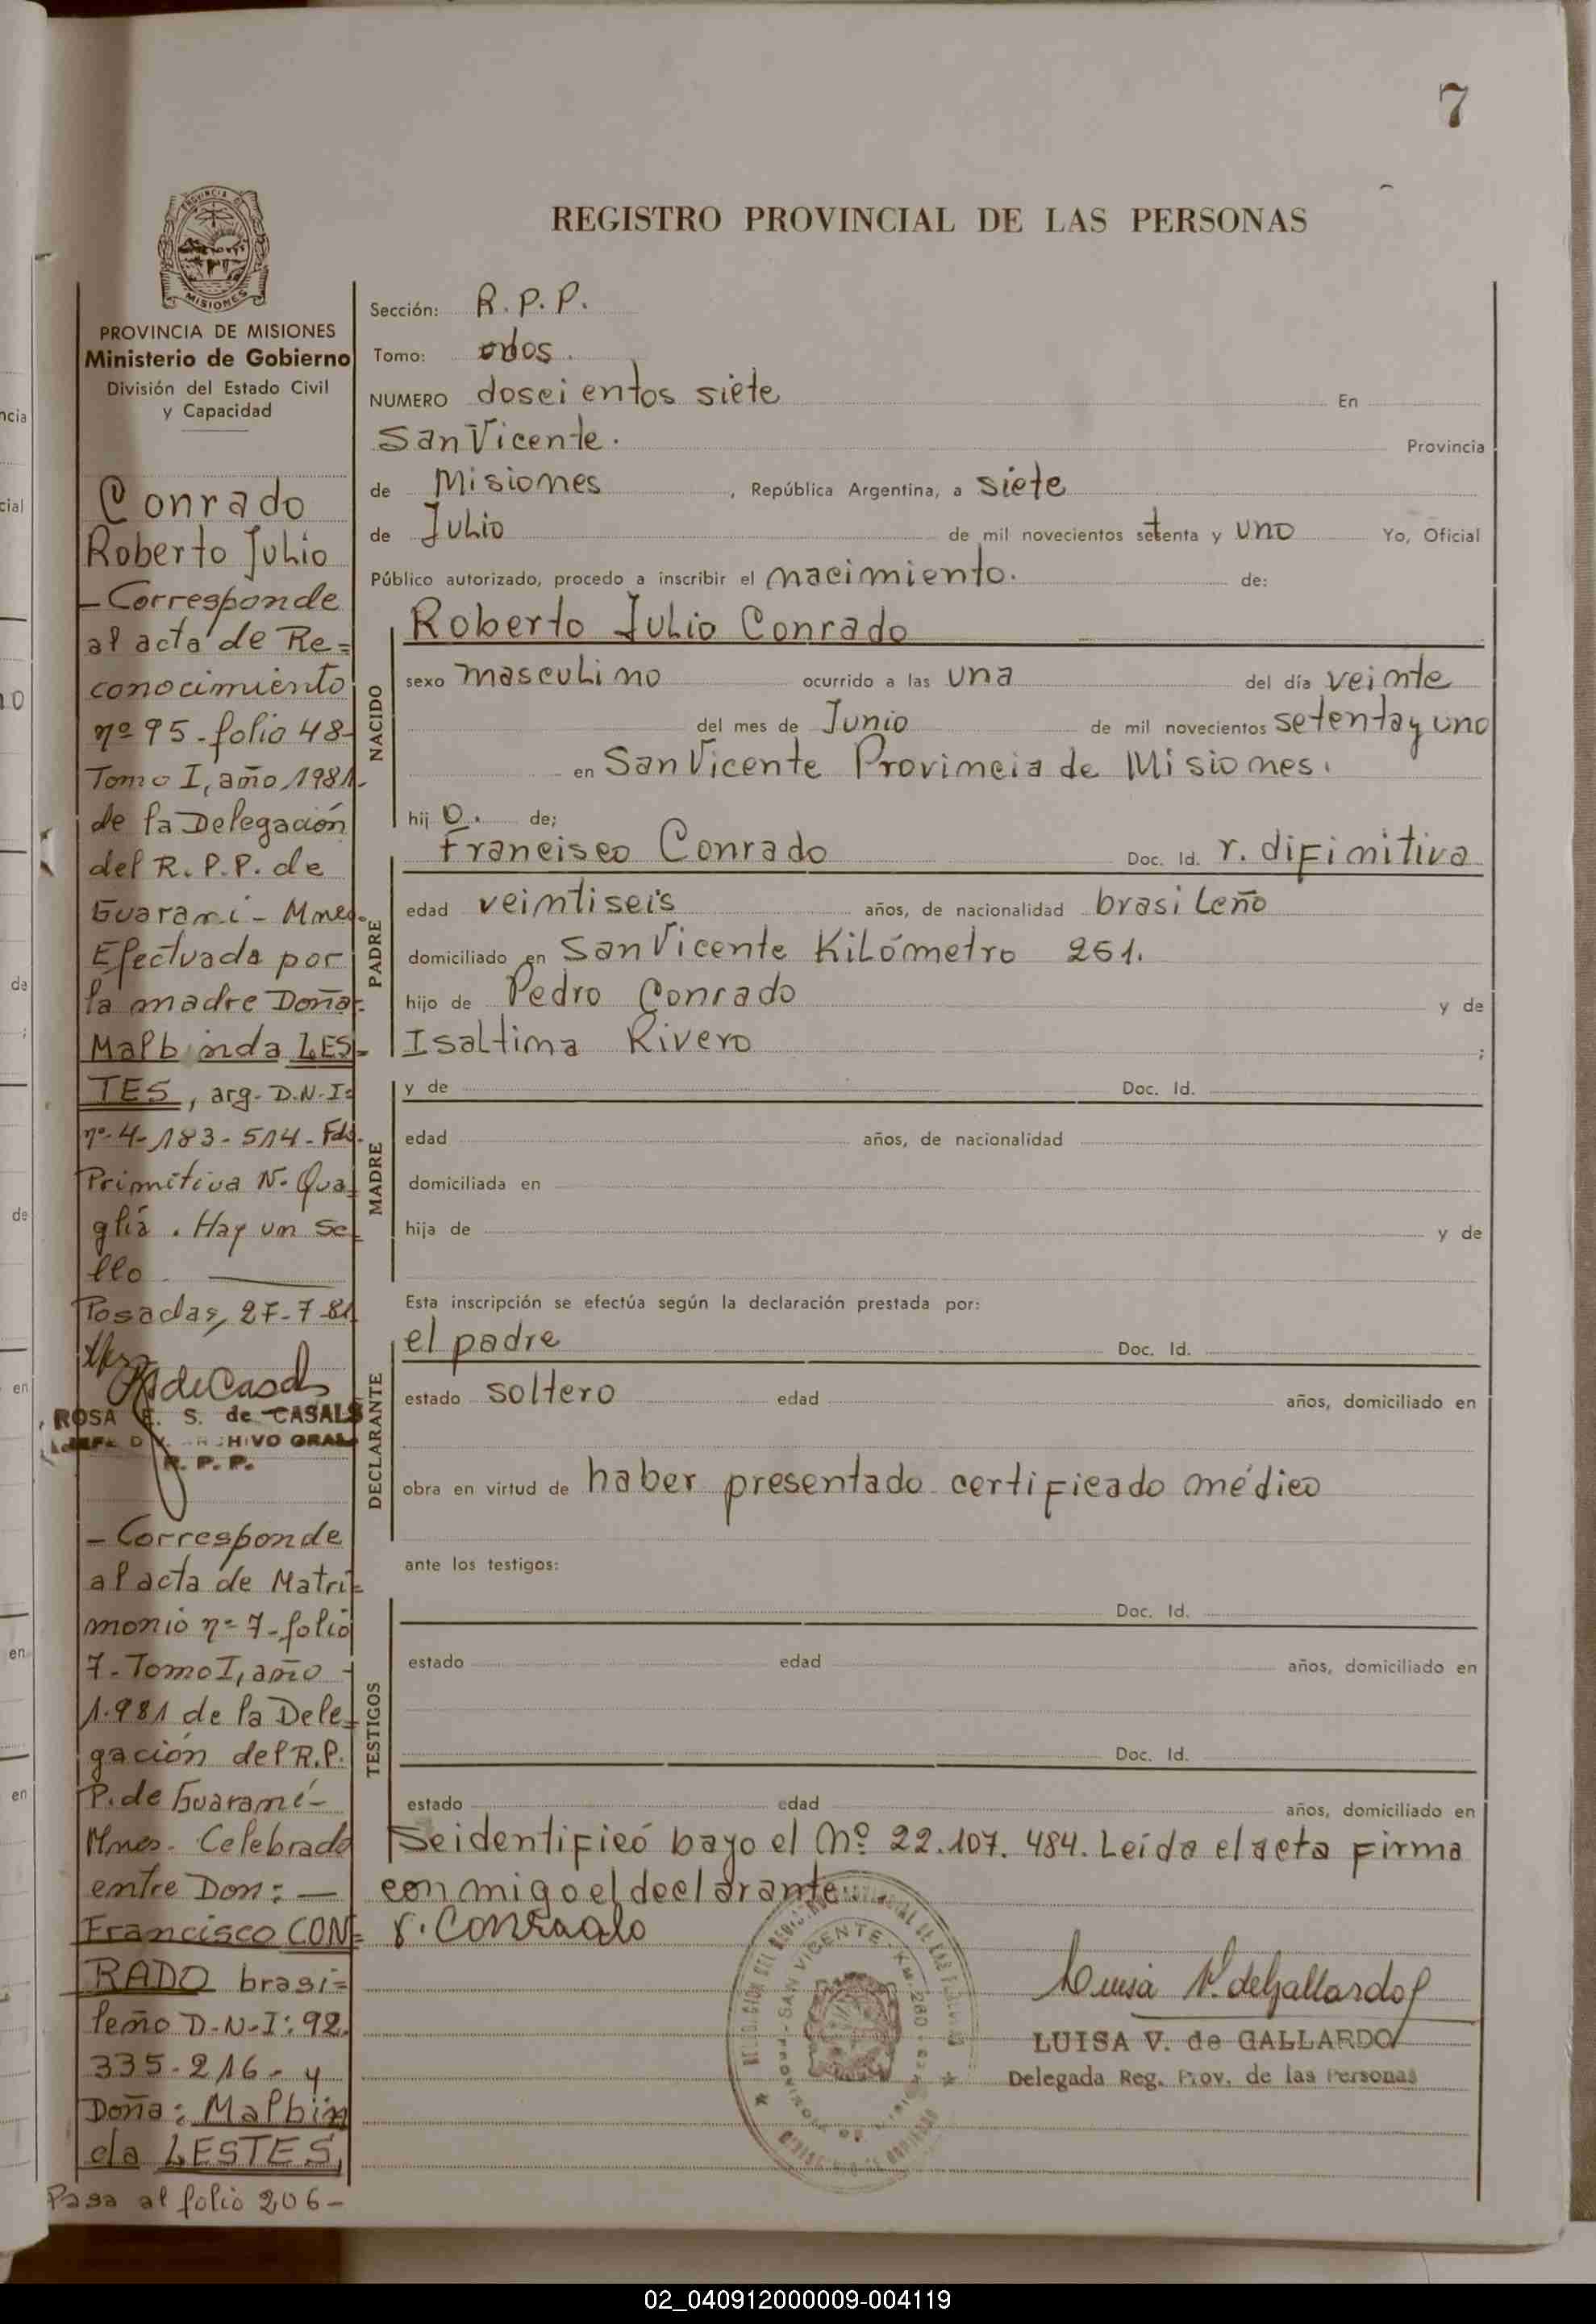 7
REGISTRO PROVINCIAL DE LAS PERSONAS
PROVINCIA DE
MISIONES
PROVINCIA DE MISIONES
Ministerio de Gobierno
División del Estado Civil
y Capacidad
Conrado
Roberto Julio
- Corresponde
al acta de Re=
conocimiento
nº 95 - folio 48-
Tomo I, año 1981-
de la Delegación
del R. P. P. de
Guaraní - Mnes.
Efectuada por
la madre Doña:
Malbinda LES=
TES, arg. D.N.I:
nº 4-183-514 - Fdo.
Primitiva N. Qua
glia. Hay un se
llo
Posadas, 27-7-81
ROSA E. S. de CASALS
JEFE DIV. ARCHIVO GRAL
R. P. P.
- Corresponde
al acta de Matri=
monio nº 7 - folio
7 - Tomo I, año -
1.981 de la Dele=
gación del R.P.
P. de Guaraní -
Mnes. Celebrado
entre Don: —
Francisco CON=
RADO brasi=
leño D-N-I: 92.
335-216- y
Doña: Malbin
da LESTES,
Pasa al folio 206-
Sección: R. P. P.
Tomo: dos.
NUMERO doscientos siete En
San Vicente. Provincia
de Misiones, República Argentina, a siete
de Julio de mil novecientos setenta y uno Yo, Oficial
Público autorizado, procedo a inscribir el nacimiento. de:
NACIDO
Roberto Julio Conrado
sexo masculino ocurrido a las una del día veinte
del mes de Junio de mil novecientos setenta y uno
en San Vicente Provincia de Misiones.
hijo. de;
PADRE
Francisco Conrado Doc. Id. r. difinitiva
edad veintiseis años, de nacionalidad brasileño
domiciliado en San Vicente Kilómetro 251.
hijo de Pedro Conrado y de
Isaltima Rivero ;
MADRE
y de Doc. Id.
edad años, de nacionalidad
domiciliada en
hija de y de
Esta inscripción se efectúa según la declaración prestada por:
DECLARANTE
el padre Doc. Id.
estado soltero edad años, domiciliado en
obra en virtud de haber presentado certificado médico
ante los testigos:
TESTIGOS
Doc. Id.
estado edad años, domiciliado en
Doc. Id.
estado edad años, domiciliado en
Se identificó bajo el Nº 22.107.484. Leída el acta firma
conmigo el declarante.
F. Conrado
SAN VICENTE - Km. 260
Luisa V. de Gallardo
LUISA V. de GALLARDO
Delegada Reg. Prov. de las Personas
ncia
cial
10
da
;
de
en
en
en
02_040912000009-004119